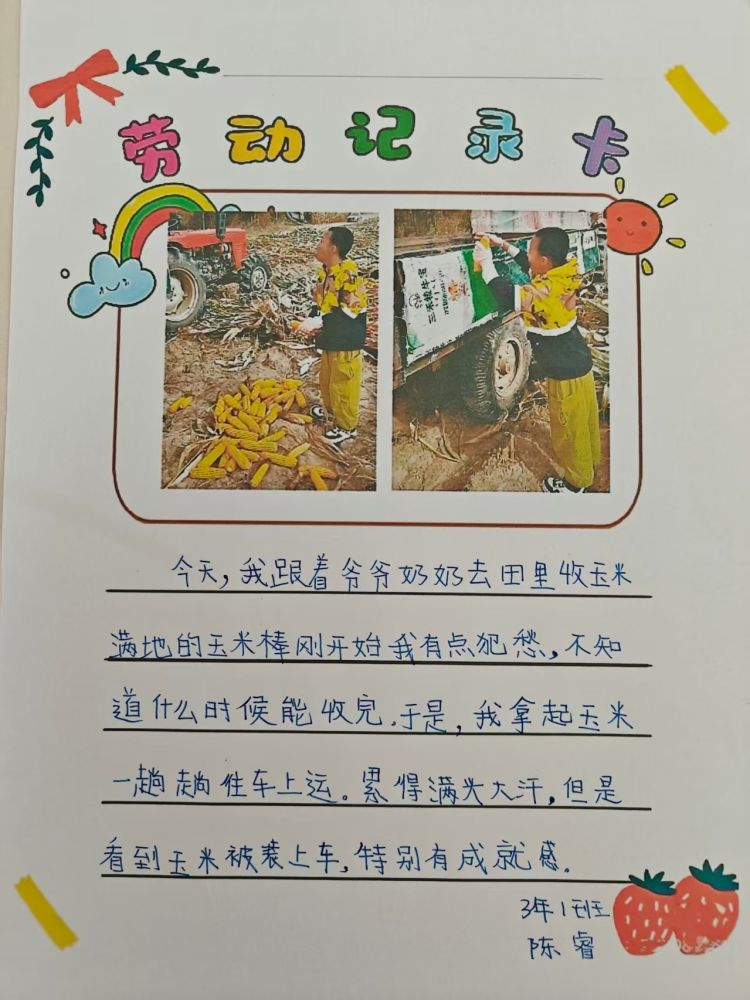 劳动记录卡
玉米粒牛育
今天,我跟着爷爷奶奶去田里收玉米
满地的玉米棒刚开始我有点犯愁,不知
道什么时候能收完.于是,我拿起玉米
一趟趟往车上运。累得满头大汗,但是
看到玉米被装上车,特别有成就感.
3年1班
陈睿